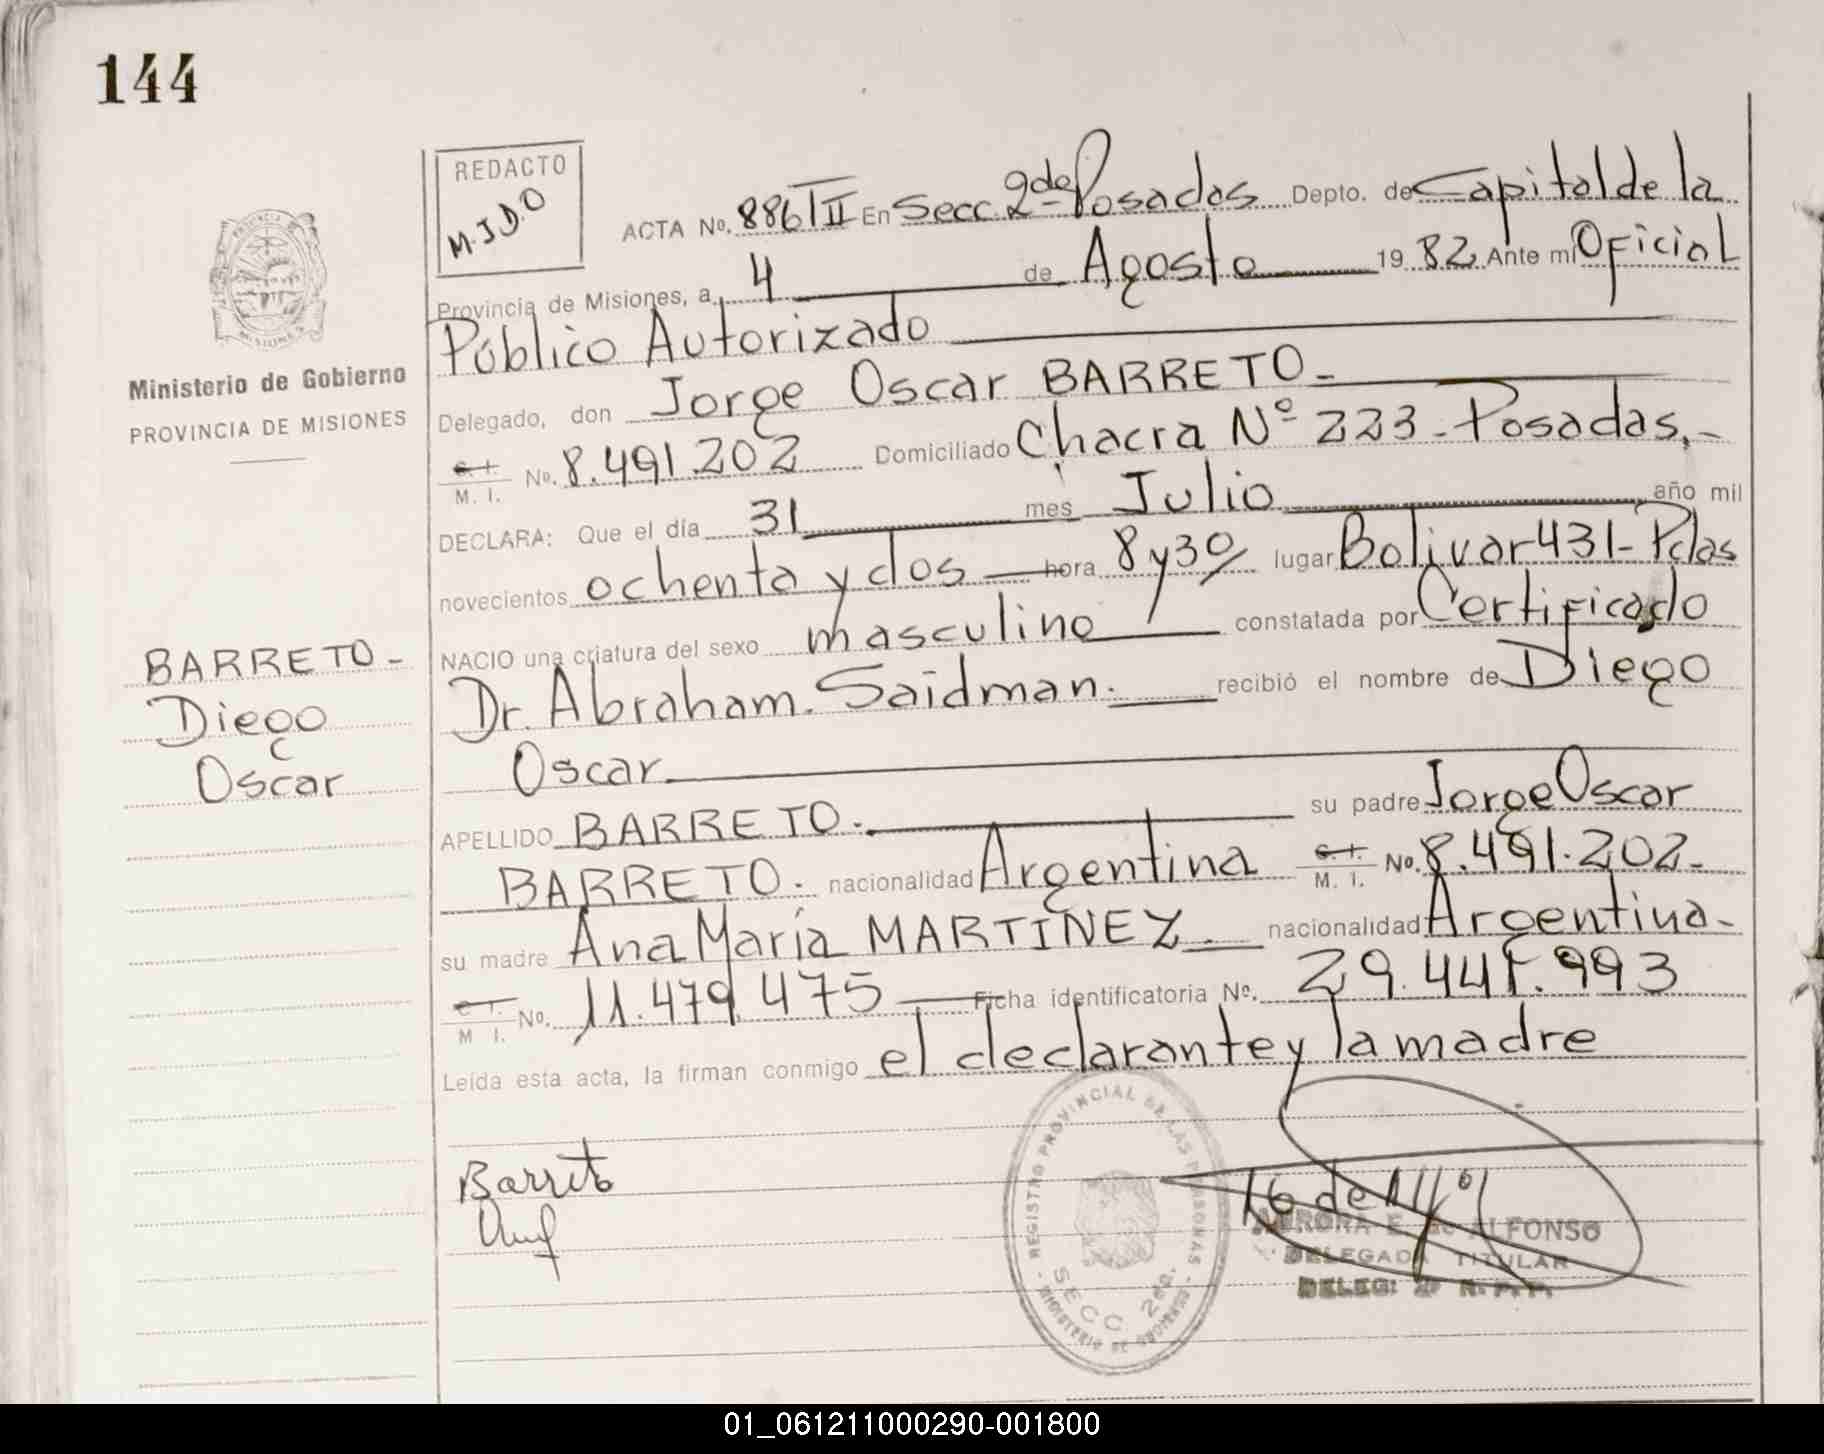 144
REDACTO
M.J.D.O
ACTA No. 886 TII En Secc. 2da Posadas Depto. de Capital de la
Provincia de Misiones, a 4 de Agosto 1982 Ante mi Oficial
Público Autorizado
Delegado, don Jorge Oscar BARRETO.-
C. I. M. I. No. 8.491.202 Domiciliado Chacra Nº 223-Posadas.-
DECLARA: Que el día 31 mes Julio año mil
novecientos ochenta y dos hora 8 y 30 lugar Bolivar 431-Pdas
NACIO una criatura del sexo masculino constatada por Certificado
Dr. Abraham. Saidman. recibió el nombre de Diego
Oscar
APELLIDO BARRETO. su padre Jorge Oscar
BARRETO. nacionalidad Argentina C. I. M. I. No. 8.491.202-
su madre Ana María MARTINEZ. nacionalidad Argentina-
C I. M I. No. 11.479.475 Ficha identificatoria No. 29.441.993
Leída esta acta, la firman conmigo el declarante y la madre
Ministerio de Gobierno
PROVINCIA DE MISIONES
BARRETO-
Diego
Oscar
PROVINCIA
MISIONES
Barreto
REGISTRO PROVINCIAL DE LAS PERSONAS
SECC. 2da.
MINISTERIO DE GOBIERNO
AURORA E. de ALFONSO
DELEGADA TITULAR
DELEG: 2ª R.P.P.
01_061211000290-001800